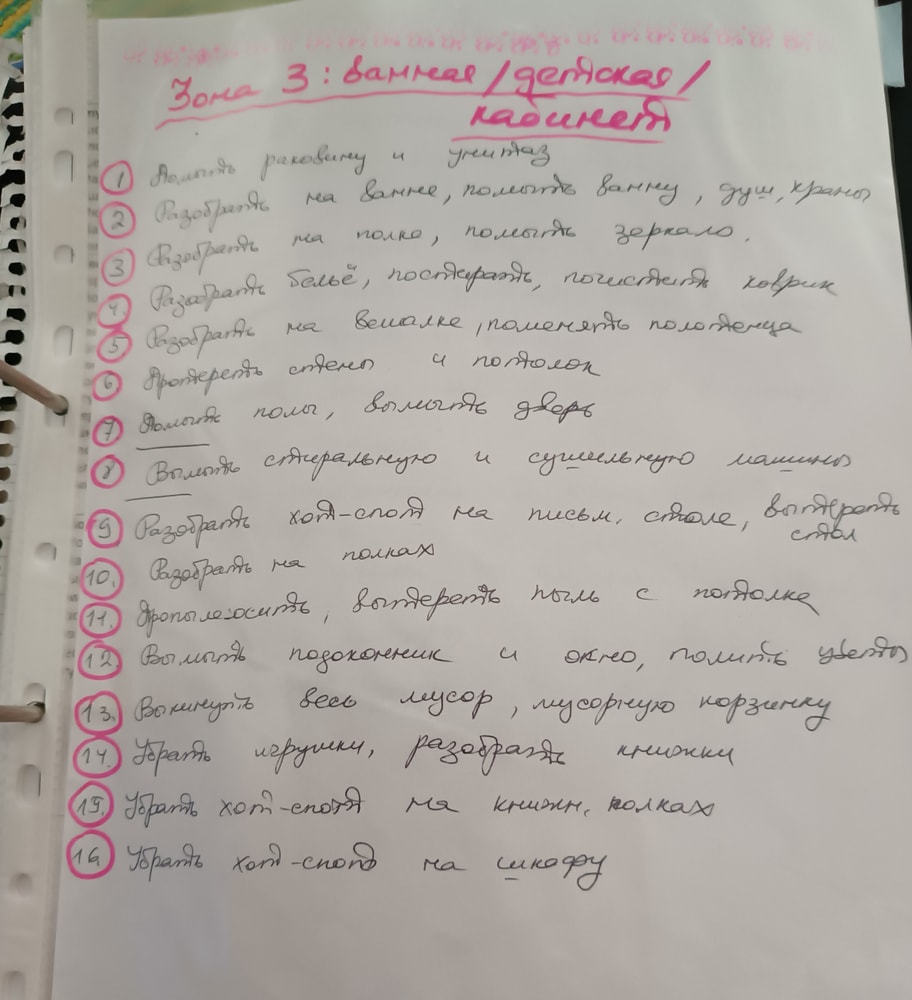 Зона 3: ванная/детская/
кабинет
1 Помыть раковину и унитаз
2 Разобрать на ванне, помыть ванну, душ, краны
3 Разобрать на полке, помыть зеркало.
4. Разобрать бельё, постирать, почистить коврик
5 Разобрать на вешалке, поменять полотенца
6. Протереть стены и потолок
7 Помыть полы, вымыть дверь
8 Вымыть стиральную и сушильную машины
9 Разобрать хот-спот на письм. столе, вытереть
стол
10. Разобрать на полках
11. Пропылесосить, вытереть пыль с потолка
12 Вымыть подоконник и окно, полить цветы
13. Выкинуть весь мусор, мусорную корзинку
14. Убрать игрушки, разобрать книжки
15. Убрать хот-спот на книжн. полках
16 Убрать хот-спот на шкафу